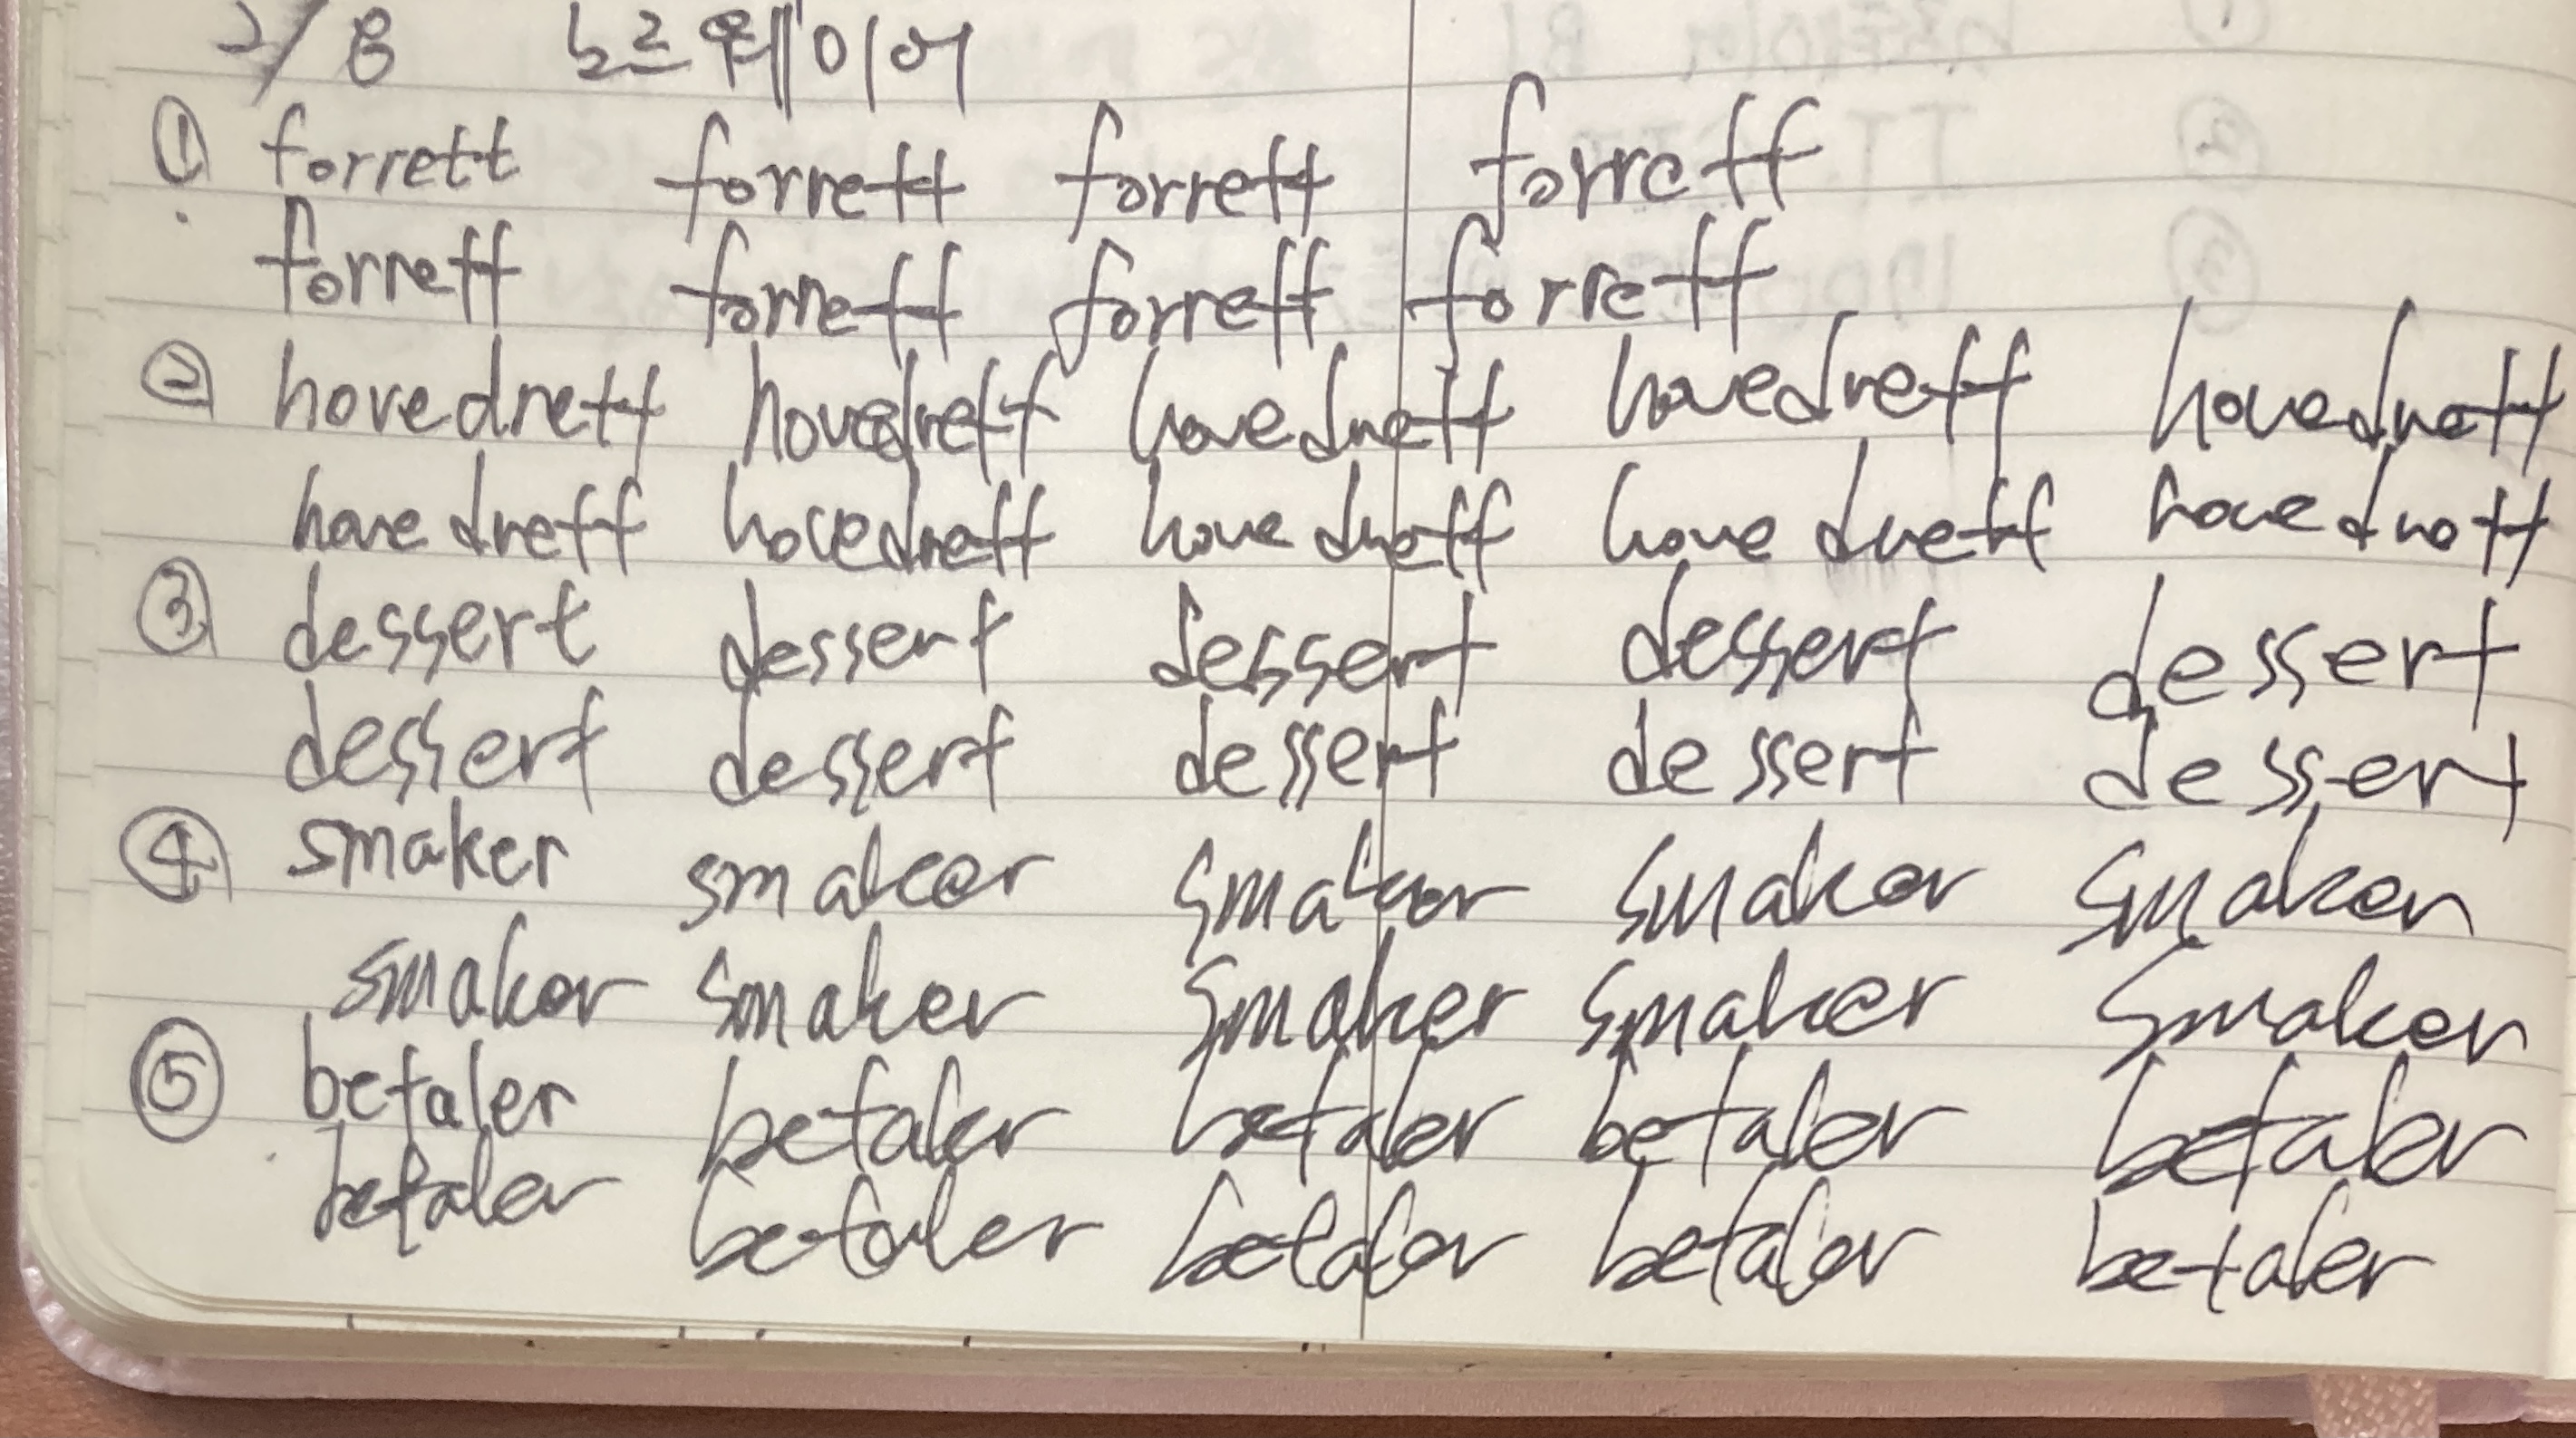 2/8 노르웨이어
① forrett forrett forrett forrett
forrett forrett forrett forrett
② hovedrett hovedrett hovedrett hovedrett hovedrett
hovedrett hovedrett hovedrett hovedrett hovedrett
③ dessert dessert dessert dessert dessert
dessert dessert dessert dessert dessert
④ smaker smaker smaker smaker smaker
smaker smaker smaker smaker smaker
⑤ betaler betaler betaler betaler betaler
betaler betaler betaler betaler betaler